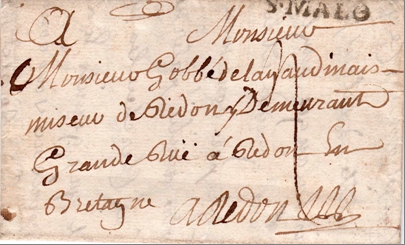 S·MALO
A Monsieur
Monsieur Gobbé de lavaudinais
miseur de Redon y Demeurant
Grande Ruë á Redon En
Bretagne A Redon